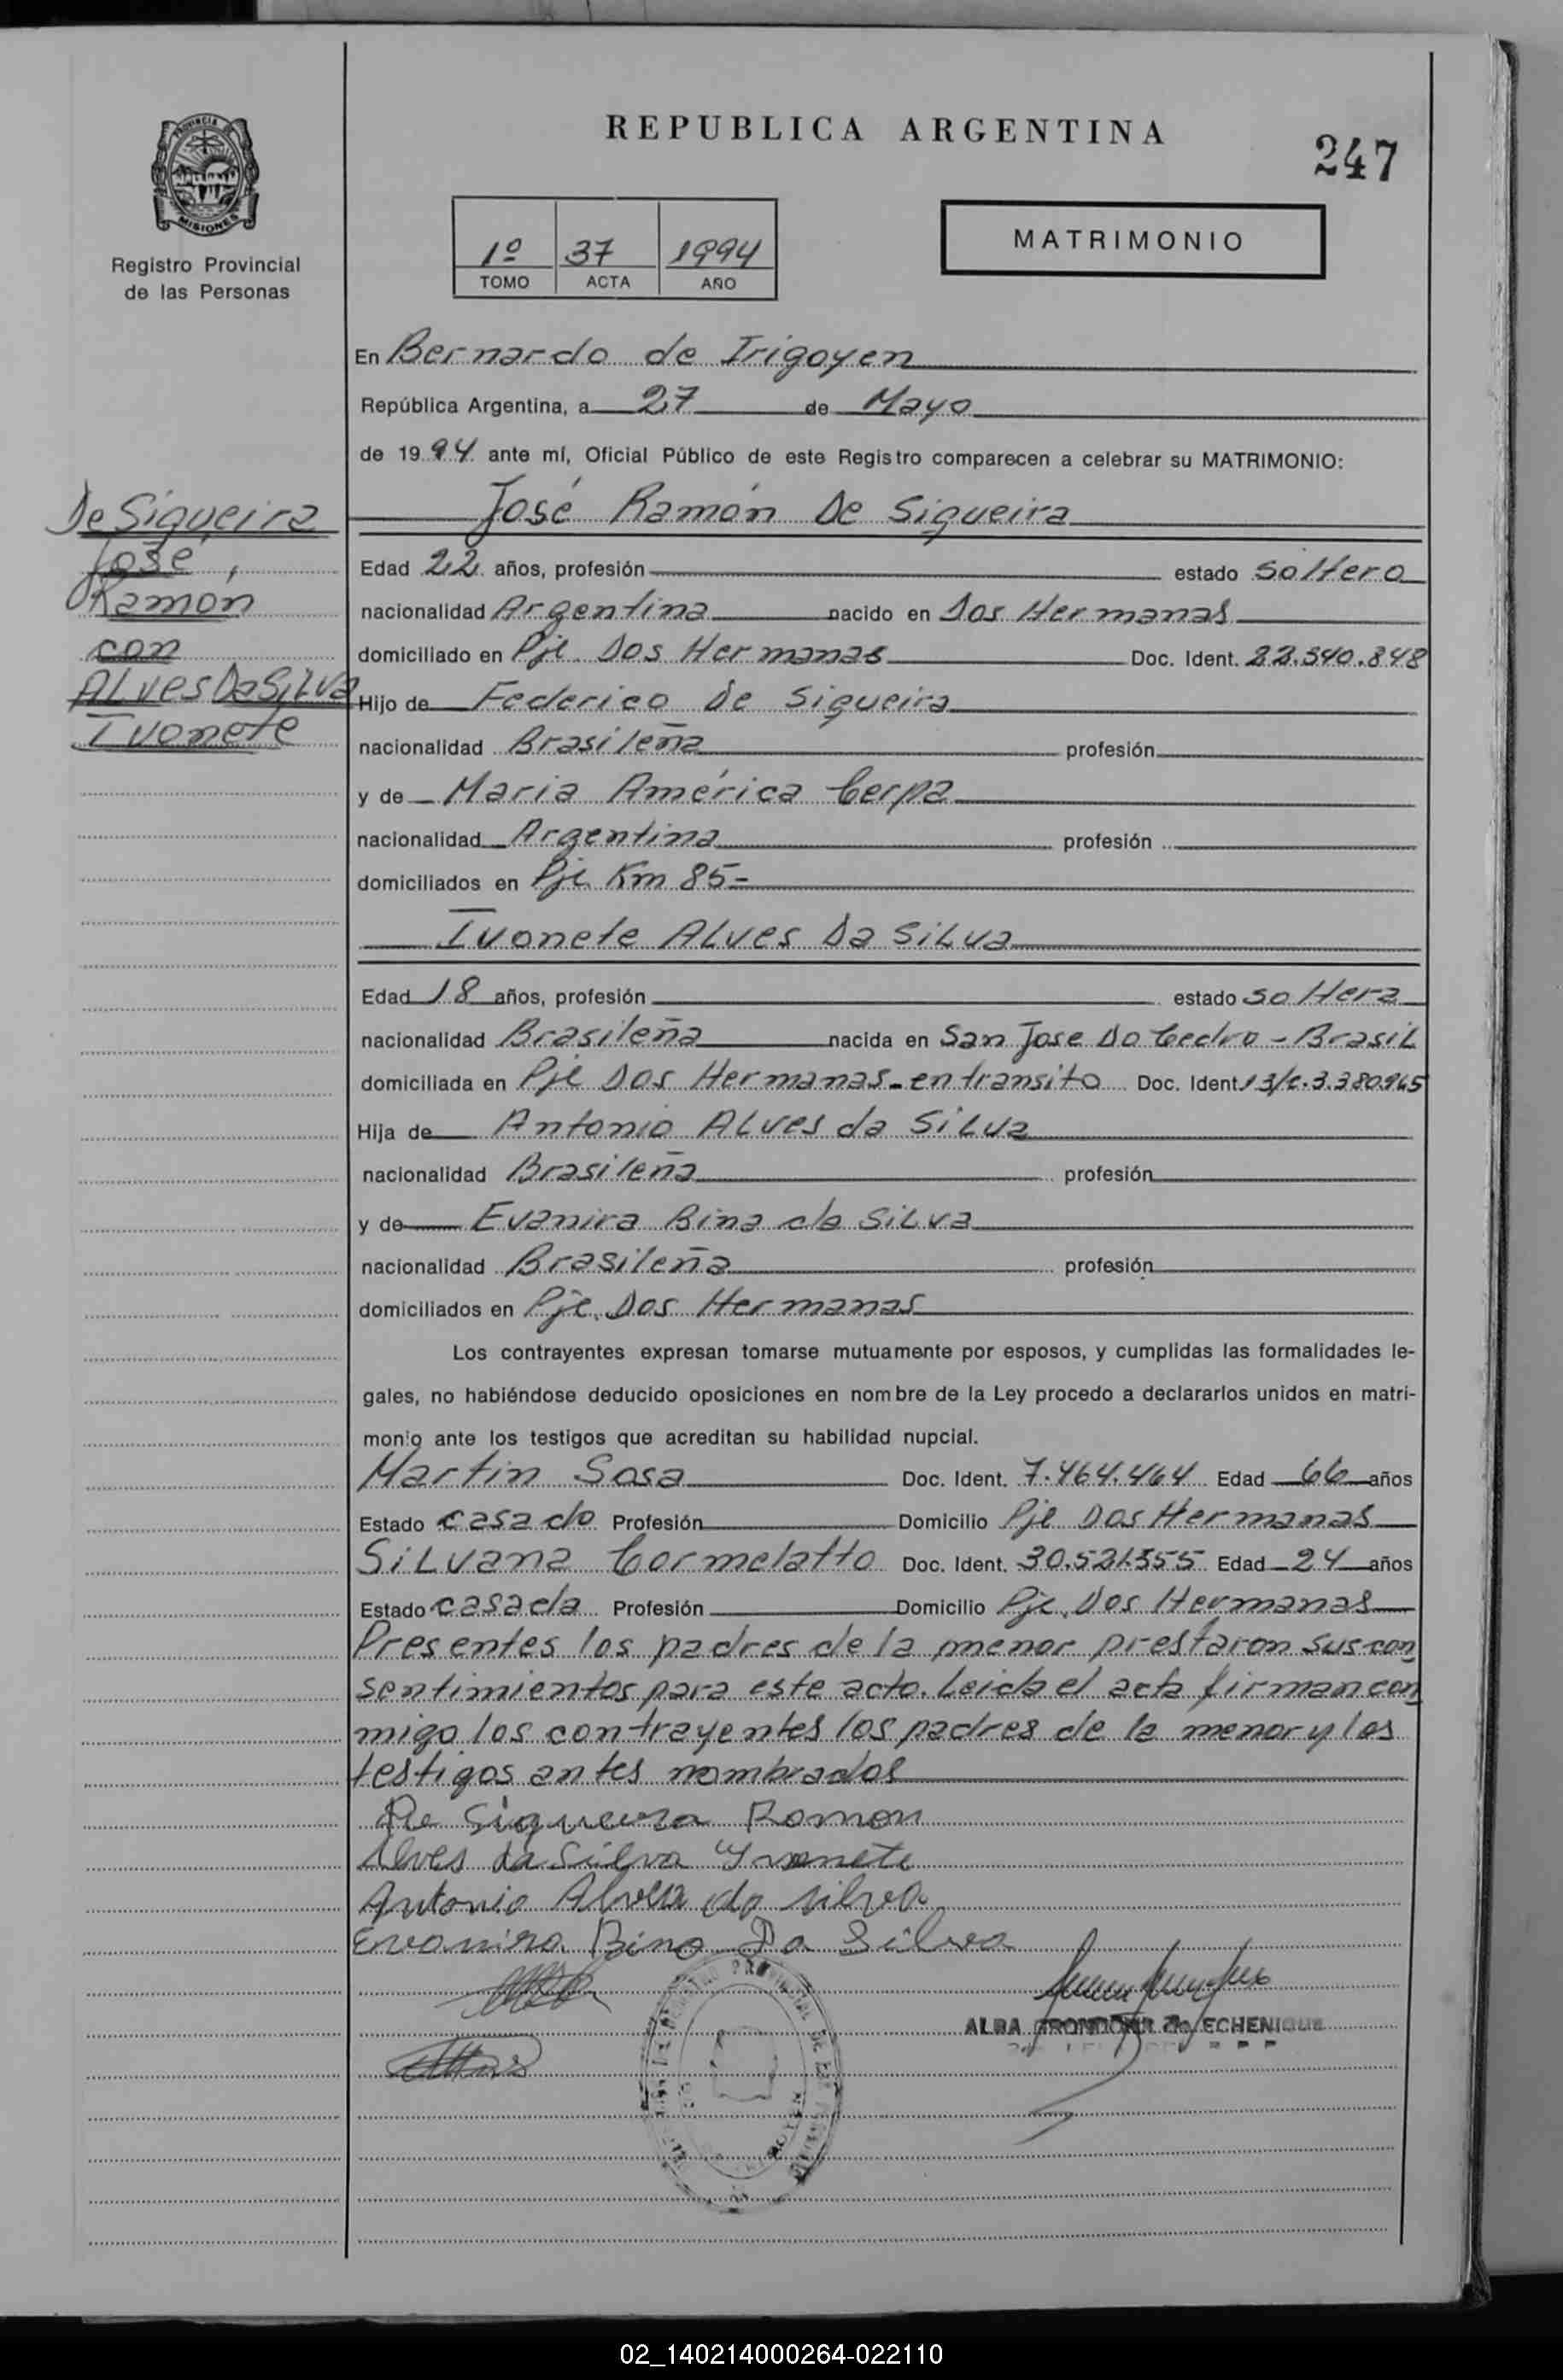 REPUBLICA ARGENTINA
247
PROVINCIA DE
MISIONES
Registro Provincial
de las Personas
1º 37 1994
TOMO ACTA AÑO
MATRIMONIO
En Bernardo de Irigoyen
República Argentina, a 27 de Mayo
de 1994 ante mí, Oficial Público de este Registro comparecen a celebrar su MATRIMONIO:
De Siqueira
José,
Ramón
con
ALves Da SiLva
Ivonete
José Ramón De Siqueira
Edad 22 años, profesión estado soltero
nacionalidad Argentina nacido en Dos Hermanas
domiciliado en Pje Dos Hermanas Doc. Ident. 22.540.848
Hijo de Federico de Siqueira
nacionalidad Brasileña profesión
y de Maria América Cerpa
nacionalidad Argentina profesión
domiciliados en Pje Km 85-
Ivonete ALves Da SiLva
Edad 18 años, profesión estado soltera
nacionalidad Brasileña nacida en San Jose Do Cedro - BrasiL
domiciliada en Pje Dos Hermanas-en transito Doc. Ident 13/c.3.380.965
Hija de Antonio ALves da SiLva
nacionalidad Brasileña profesión
y de Evanira Bina da SiLva
nacionalidad Brasileña profesión
domiciliados en Pje. Dos Hermanas
Los contrayentes expresan tomarse mutuamente por esposos, y cumplidas las formalidades le-
gales, no habiéndose deducido oposiciones en nombre de la Ley procedo a declararlos unidos en matri-
monio ante los testigos que acreditan su habilidad nupcial.
Martin Sosa Doc. Ident. 7.464.464 Edad 66 años
Estado casado Profesión Domicilio Pje Dos Hermanas
SiLvana Cormelatto Doc. Ident. 30.521.355 Edad 24 años
Estado casada Profesión Domicilio Pje. Dos Hermanas
Presentes los padres de la menor prestaron sus con
sentimientos para este acto. Leida el acta firman con
migo los contrayentes los padres de la menor y los
testigos antes nombrados
De Siqueira Ramon
Alves da Silva Yvonete
Antonio Alves da silva
Evanira Bina Da Silva
ALBA GRONDONA de ECHENIQUE
02_140214000264-022110